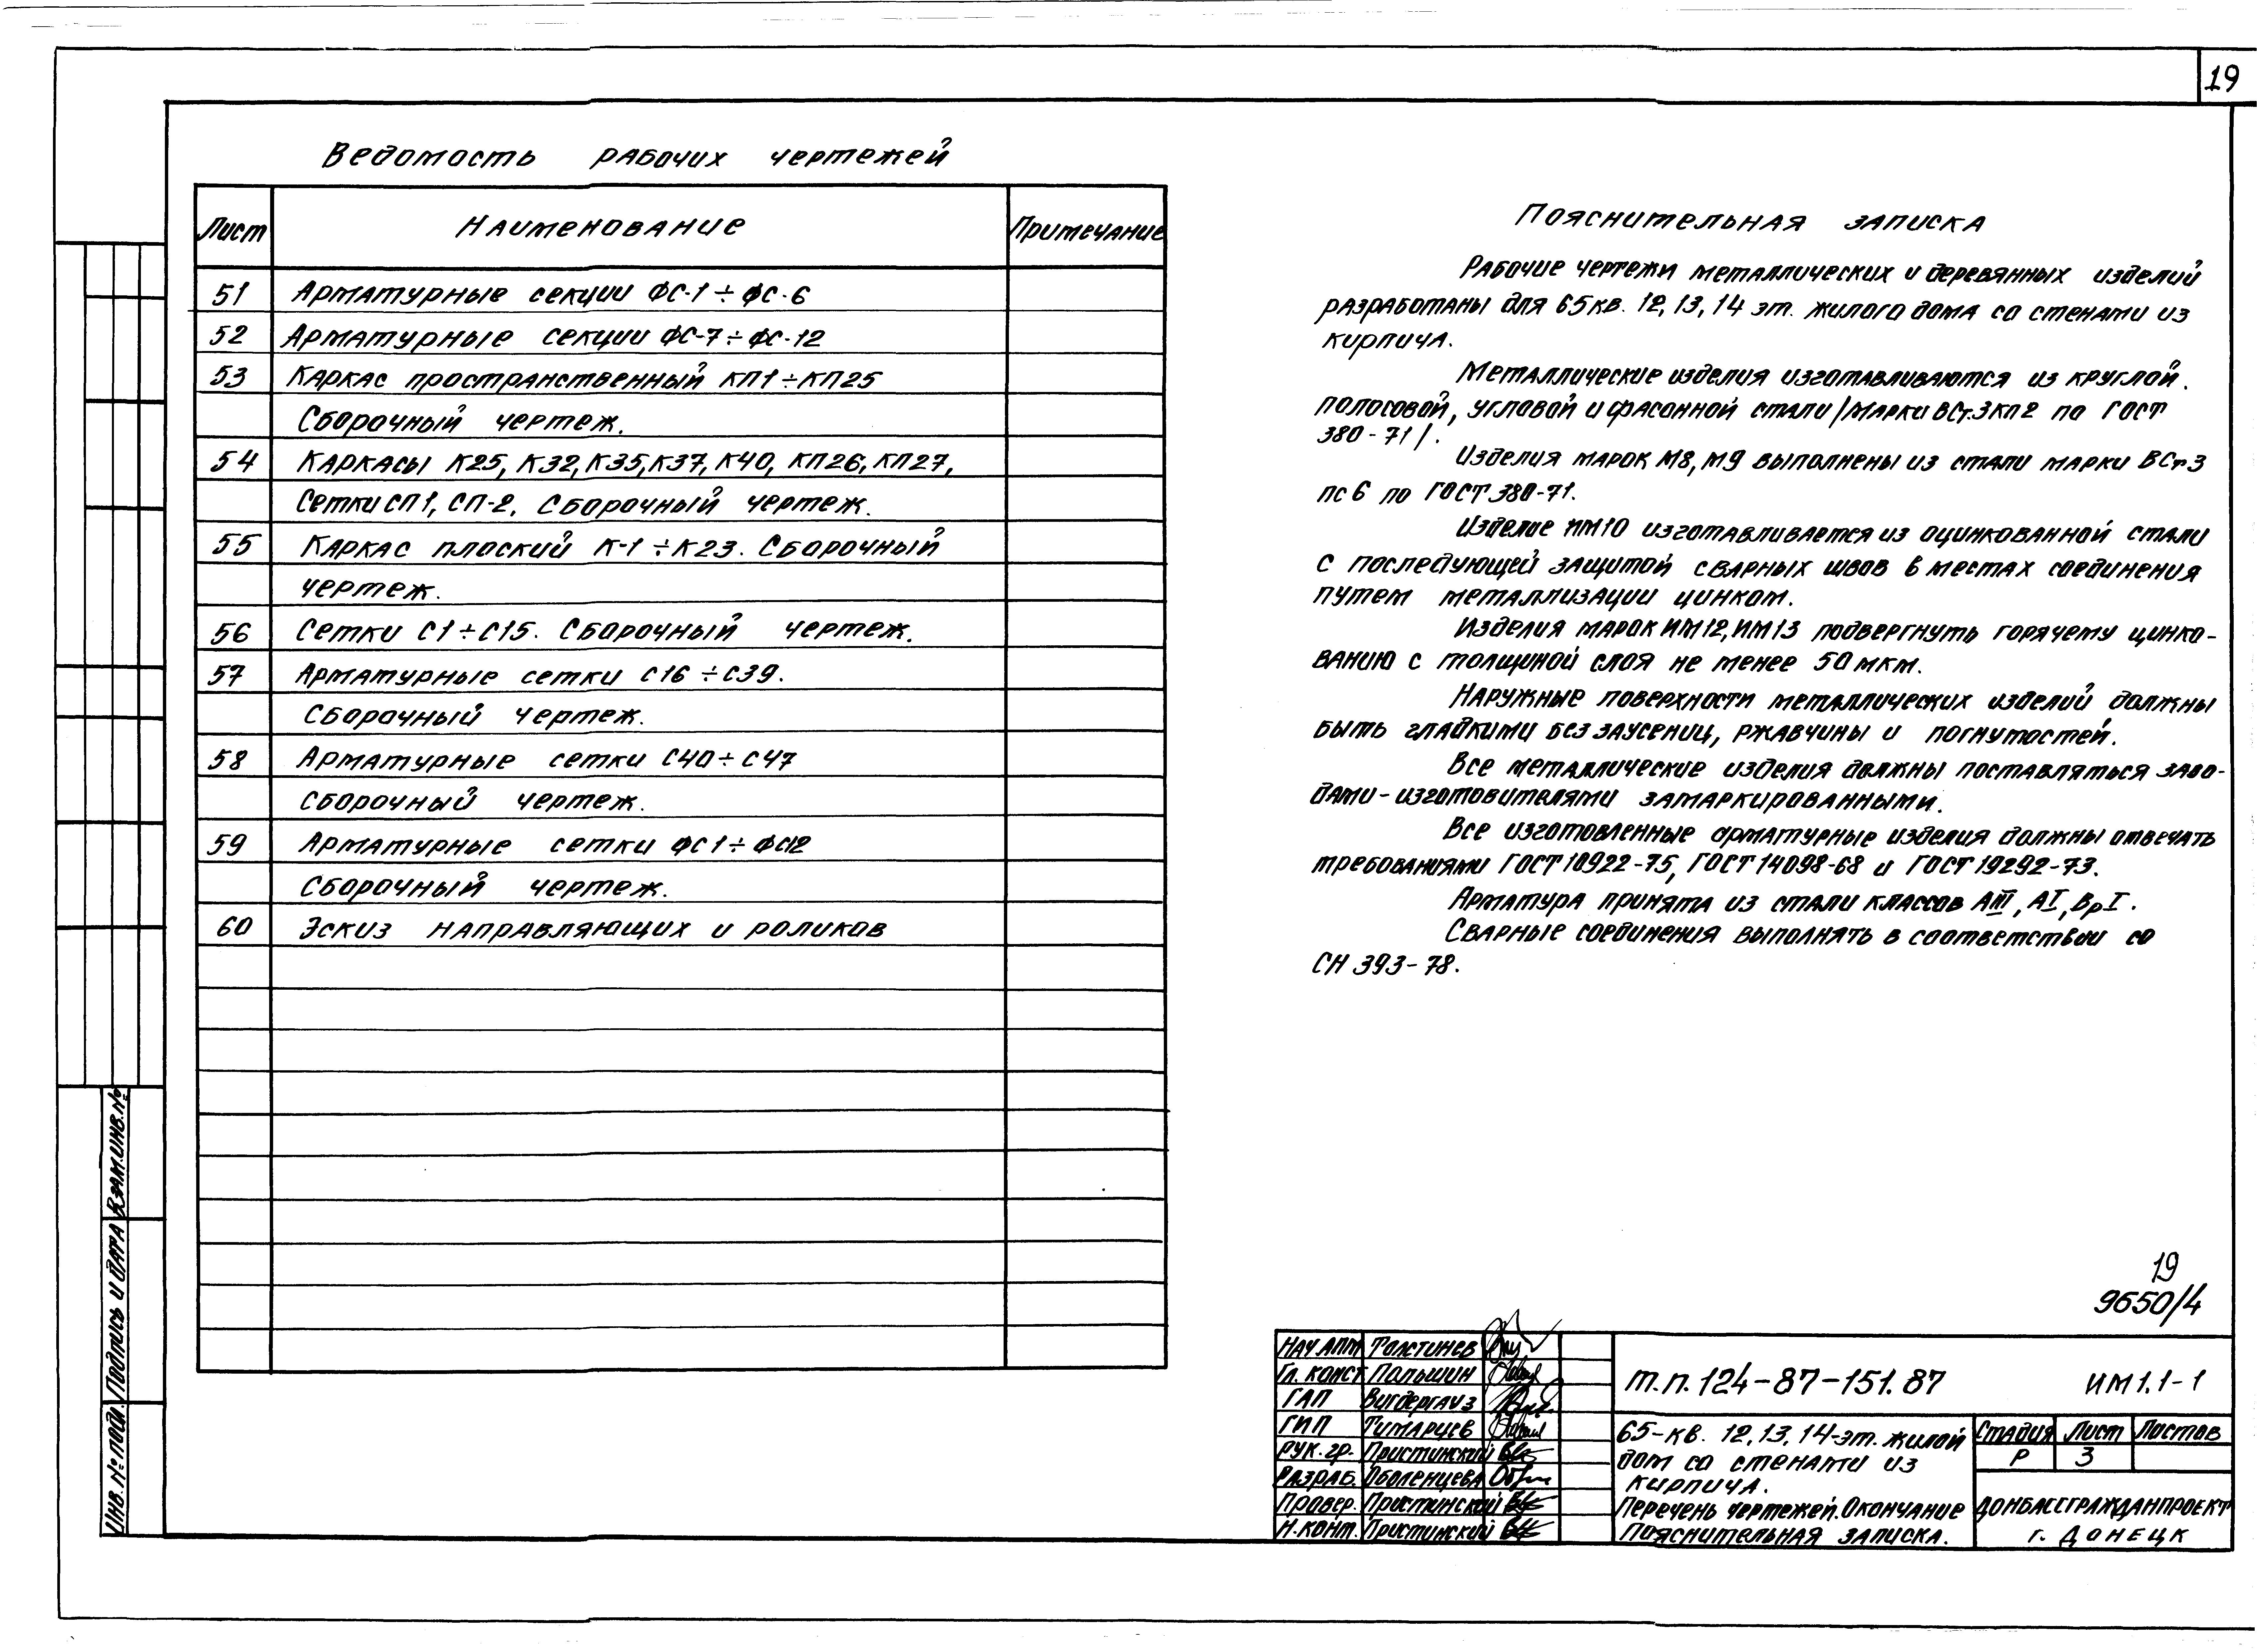 19
Ведомость рабочих чертежей
Лист Наименование Примечание
51 Арматурные секции ФС-1÷ФС-6
52 Арматурные секции ФС-7÷ФС-12
53 Каркас пространственный КП1÷КП25
Сборочный чертеж.
54 Каркасы К25, К32, К35, К37, К40, КП26, КП27,
Сетки СП1, СП-2. Сборочный чертеж.
55 Каркас плоский К-1÷К23. Сборочный
чертеж.
56 Сетки С1÷С15. Сборочный чертеж.
57 Арматурные сетки С16÷С39.
Сборочный чертеж.
58 Арматурные сетки С40÷С47
Сборочный чертеж.
59 Арматурные сетки ФС1÷ФС12
Сборочный чертеж.
60 Эскиз направляющих и роликов
Пояснительная записка
Рабочие чертежи металлических и деревянных изделий
разработаны для 65кв. 12, 13, 14 эт. жилого дома со стенами из
кирпича.
Металлические изделия изготавливаются из круглой.
полосовой, угловой и фасонной стали /марки ВСт.3кп2 по ГОСТ
380-71/.
Изделия марок М8, М9 выполнены из стали марки ВСт3
пс6 по ГОСТ 380-71.
Изделие ИМ10 изготавливается из оцинкованной стали
с последующей защитой сварных швов в местах соединения
путем металлизации цинком.
Изделия марок ИМ12, ИМ13 подвергнуть горячему цинко-
ванию с толщиной слоя не менее 50 мкм.
Наружные поверхности металлических изделий должны
быть гладкими без заусениц, ржавчины и погнутостей.
Все металлические изделия должны поставляться заво-
дами-изготовителями замаркированными.
Все изготовленные арматурные изделия должны отвечать
требованиями ГОСТ 10922-75, ГОСТ 14098-68 и ГОСТ 19292-73.
Арматура принята из стали классов АIII, АI, ВрI.
Сварные соединения выполнять в соответствии со
СН 393-78.
19
9650/4
Нач АПМ Толстинев
Гл. конст Пальшин
ГАП Вигдергауз
ГИП Тимарцев
Рук. гр. Пристинский
Разраб. Оболенцева
Провер. Пристинский
Н. конт. Пристинский
т.п. 124-87-151.87 ИМ1.1-1
65-кв. 12, 13, 14-эт. жилой
дом со стенами из
кирпича.
Перечень чертежей. Окончание
Пояснительная записка.
Стадия Лист Листов
Р 3
ДОНБАССГРАЖДАНПРОЕКТ
г. Донецк
Взам. инв. №
Подпись и дата
Инв. № подл.